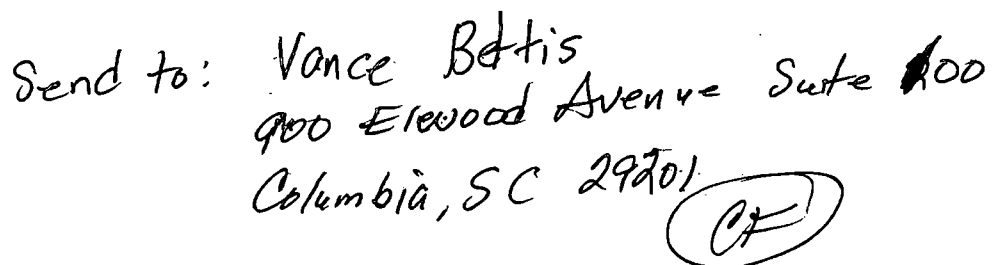 Send to: Vance Bettis
900 Elewood Avenue Suite 100
Columbia, SC 29201
CF